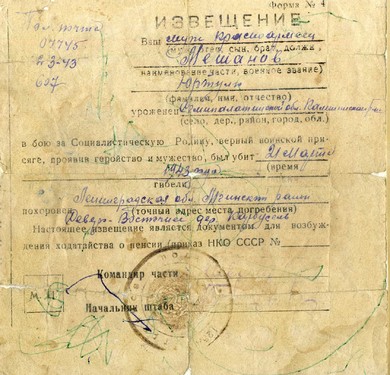 Форма № 4
Пол. почта
07745
2 3-43
607
ИЗВЕЩЕНИЕ
Ваш муж красноармеец
(муж, отец, сын, брат, должн.,
Тешанов
наименование части, военное звание)
(фамилия, имя, отчество)
уроженец Семипалатинской обл.
(село, дер., район, город, обл.)
в бою за Социалистическую Родину, верный воинской при-
сяге, проявив геройство и мужество, был убит 21 марта
1943 года (время
гибели)
Ленинградская обл. Мгинский район
похоронен (точный адрес места погребения)
Северо-Восточнее дер. Карбусель
Настоящее извещение является документом для возбуж-
дения ходатайства о пенсии (приказ НКО СССР №
Командир части
М.П.
Начальник штаба